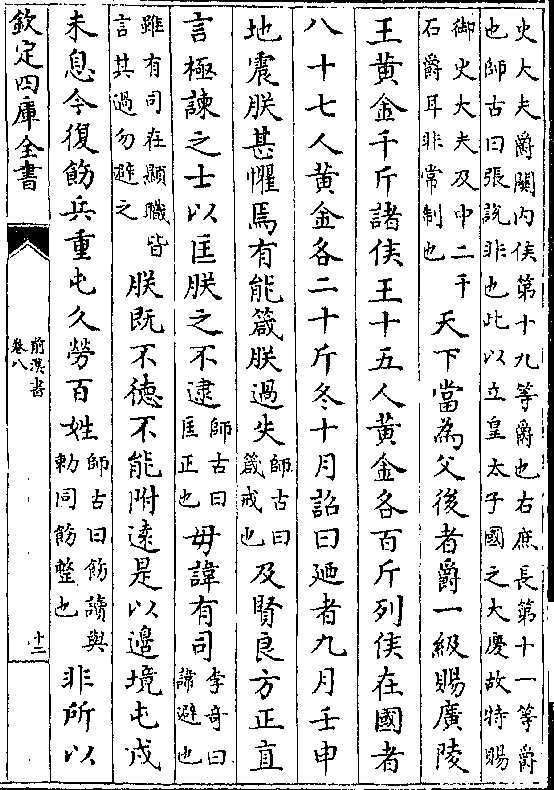 史大夫爵關內侯第十九等爵也右庶長第十一等爵
也師古曰張說非也此以立皇太子國之大慶故特賜
御史大夫及中二千石爵耳非常制也天下當為父後者爵一級賜廣陵
王黃金千斤諸侯王十五人黃金各百斤列侯在國者
八十七人黃金各二十斤冬十月詔曰廼者九月壬申
地震朕甚懼焉有能箴朕過失師古曰箴戒也及賢良方正直
言極諫之士以匡朕之不逮師古曰匡正也毋諱有司李奇曰諱避也
雖有司在顯職皆言其過勿避之朕既不德不能附遠是以邊境屯戍
未息今復飭兵重屯久勞百姓師古曰飭讀與勅同飭整也非所以
欽定四庫全書
前漢書
卷八
十二